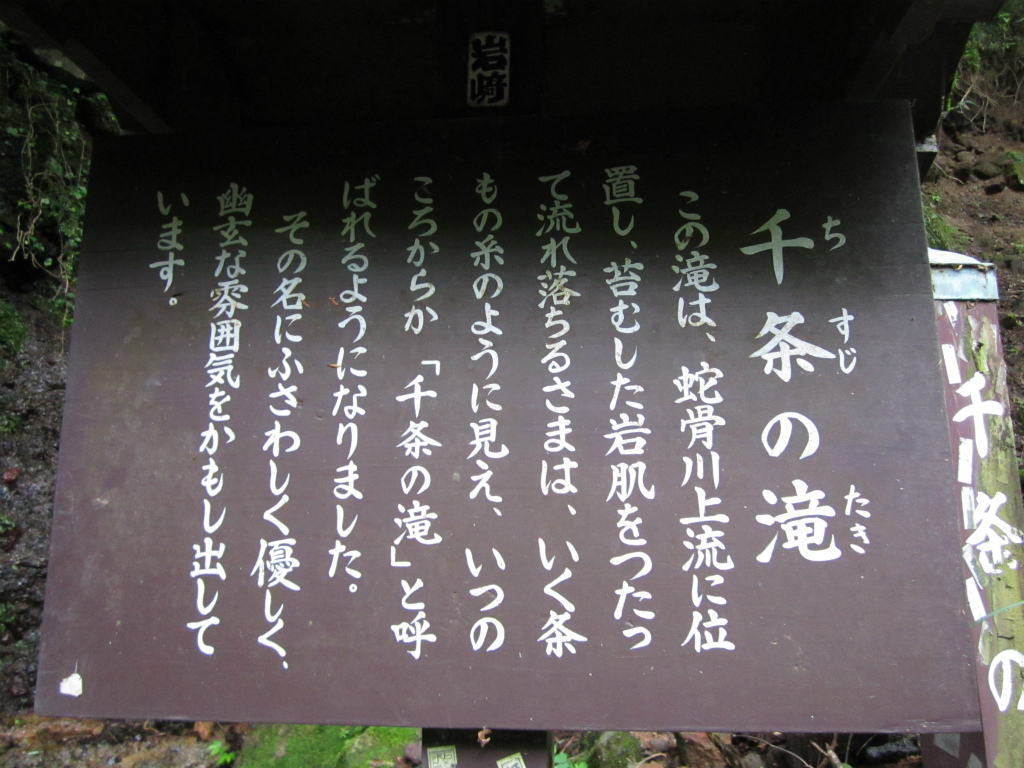 岩崎
千条の滝
ち すじ たき
この滝は、蛇骨川上流に位
置し、苔むした岩肌をつたっ
て流れ落ちるさまは、いく条
もの糸のように見え、いつの
ころからか「千条の滝」と呼
ばれるようになりました。
その名にふさわしく優しく、
幽玄な雰囲気をかもし出して
います。
千条の